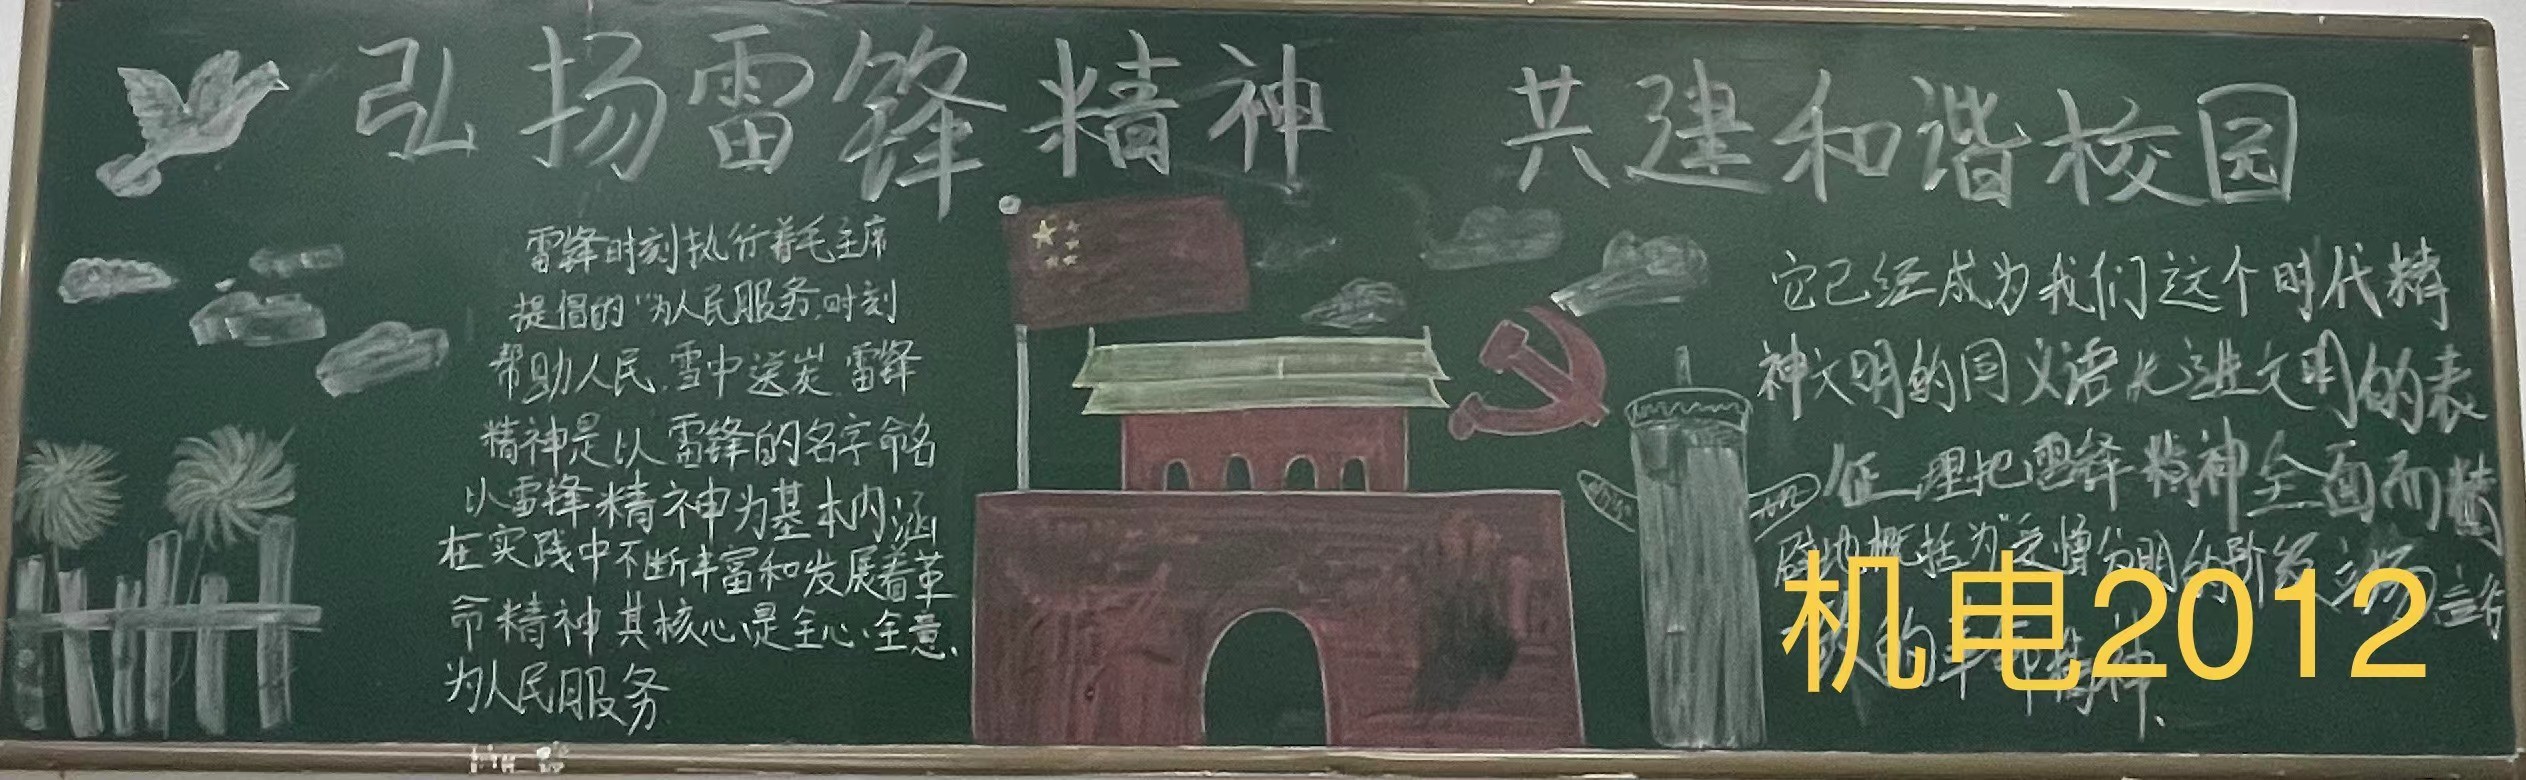 弘扬雷锋精神 共建和谐校园
雷锋时刻执行着毛主席
提倡的“为人民服务,时刻
帮助人民.雪中送炭.雷锋
精神是以雷锋的名字命名
以雷锋精神为基本内涵
在实践中不断丰富和发展着革
命精神其核心是全心全意、
为人民服务
它已经成为我们这个时代精
神文明的同义语先进文明的表
征 理把雷锋精神全面而精
辟地概括为“分明的阶级立场
的精神、
机电2012